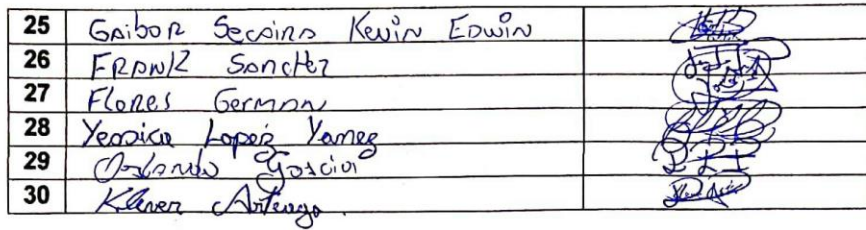 25 Gaibor Secaira Kevin Edwin
26 Frank Sanchez
27 Flores German
28 Yessica Lopez Yanez
29 Orlando Garcia
30 Klever Arteaga.